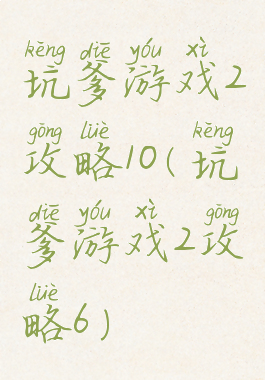 kēng diē yóu xì
坑爹游戏2
gōng lüè kēng
攻略10(坑
diē yóu xì gōng
爹游戏2攻
lüè
略6)